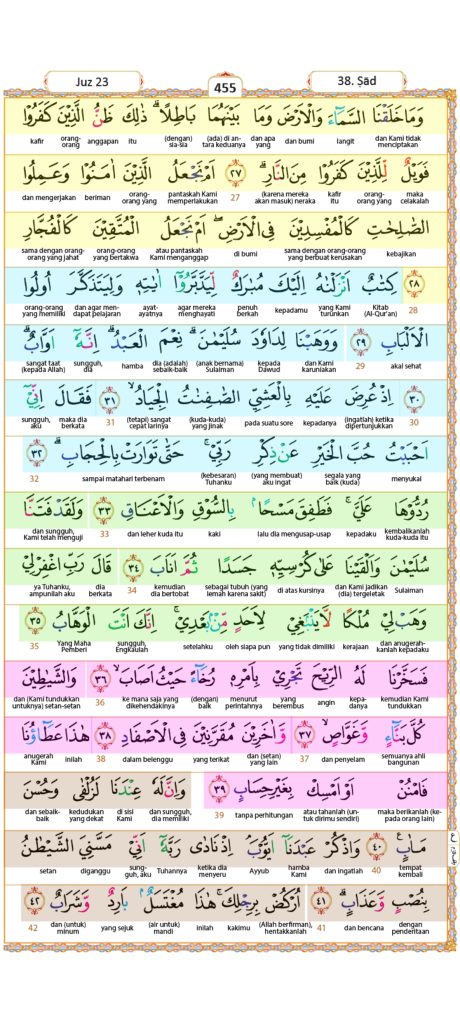 Juz 23
455
38. Ṣād
وَمَا خَلَقْنَا السَّمَاۤءَ وَالْاَرْضَ وَمَا بَيْنَهُمَا بَاطِلًا ۗ ذٰلِكَ ظَنُّ الَّذِيْنَ كَفَرُوْا
dan Kami tidak menciptakan langit dan bumi dan apa yang (ada) di antara keduanya (dengan) sia-sia itu anggapan orang-orang kafir
فَوَيْلٌ لِّلَّذِيْنَ كَفَرُوْا مِنَ النَّارِۗ ٢٧ اَمْ نَجْعَلُ الَّذِيْنَ اٰمَنُوْا وَعَمِلُوا
maka celakalah orang yang kafir itu (karena mereka akan masuk) neraka 27 pantaskah Kami memperlakukan orang-orang yang beriman dan mengerjakan
الصّٰلِحٰتِ كَالْمُفْسِدِيْنَ فِى الْاَرْضِۖ اَمْ نَجْعَلُ الْمُتَّقِيْنَ كَالْفُجَّارِ
kebajikan sama dengan orang-orang yang berbuat kerusakan di bumi atau pantaskah Kami menganggap orang-orang yang bertakwa sama dengan orang-orang yang jahat
٢٨ كِتٰبٌ اَنْزَلْنٰهُ اِلَيْكَ مُبٰرَكٌ لِّيَدَّبَّرُوْٓا اٰيٰتِهٖ وَلِيَتَذَكَّرَ اُولُوا
28 Kitab (Al-Qur'an) yang Kami turunkan kepadamu penuh berkah agar mereka menghayati ayat-ayatnya dan agar mendapat pelajaran orang-orang yang memiliki
الْاَلْبَابِ ٢٩ وَوَهَبْنَا لِدَاوٗدَ سُلَيْمٰنَۗ نِعْمَ الْعَبْدُۗ اِنَّهٗٓ اَوَّابٌۗ
akal sehat 29 dan Kami karuniakan kepada Dawud (anak bernama) Sulaiman dia (adalah) sebaik-baik hamba sungguh, dia sangat taat (kepada Allah)
٣٠ اِذْ عُرِضَ عَلَيْهِ بِالْعَشِيِّ الصّٰفِنٰتُ الْجِيَادُۙ ٣١ فَقَالَ اِنِّيْٓ
30 (ingatlah) ketika dipertunjukkan kepadanya pada suatu sore (kuda-kuda) yang jinak (tetapi) sangat cepat larinya 31 maka dia berkata sungguh, aku
اَحْبَبْتُ حُبَّ الْخَيْرِ عَنْ ذِكْرِ رَبِّيْۚ حَتّٰى تَوَارَتْ بِالْحِجَابِۗ ٣٢
menyukai segala yang baik (kuda) (yang membuat) aku ingat (kebesaran) Tuhanku sampai matahari terbenam 32
رُدُّوْهَا عَلَيَّۚ فَطَفِقَ مَسْحًاۢ بِالسُّوْقِ وَالْاَعْنَاقِ ٣٣ وَلَقَدْ فَتَنَّا
kembalikanlah kuda-kuda itu kepadaku lalu dia mengusap-usap kaki dan leher kuda itu 33 dan sungguh, Kami telah menguji
سُلَيْمٰنَ وَاَلْقَيْنَا عَلٰى كُرْسِيِّهٖ جَسَدًا ثُمَّ اَنَابَ ٣٤ قَالَ رَبِّ اغْفِرْ لِيْ
Sulaiman dan Kami jadikan (dia) tergeletak di atas kursinya sebagai tubuh (yang lemah karena sakit) kemudian dia bertobat 34 dia berkata ya Tuhanku, ampunilah aku
وَهَبْ لِيْ مُلْكًا لَّا يَنْۢبَغِيْ لِاَحَدٍ مِّنْۢ بَعْدِيْۚ اِنَّكَ اَنْتَ الْوَهَّابُ ٣٥
dan anugerahkanlah kepadaku kerajaan yang tidak dimiliki oleh siapa pun setelahku sungguh, Engkaulah Yang Maha Pemberi 35
فَسَخَّرْنَا لَهُ الرِّيْحَ تَجْرِيْ بِاَمْرِهٖ رُخَاۤءً حَيْثُ اَصَابَۙ ٣٦ وَالشَّيٰطِيْنَ
kemudian Kami tundukkan kepadanya angin yang berembus menurut perintahnya (dengan) baik ke mana saja yang dikehendakinya 36 dan (Kami tundukkan untuknya) setan-setan
كُلَّ بَنَّاۤءٍ وَّغَوَّاصٍۙ ٣٧ وَّاٰخَرِيْنَ مُقَرَّنِيْنَ فِى الْاَصْفَادِ ٣٨ هٰذَا عَطَاۤؤُنَا
semuanya ahli bangunan dan penyelam 37 dan (setan) yang lain yang terikat dalam belenggu 38 inilah anugerah Kami
فَامْنُنْ اَوْ اَمْسِكْ بِغَيْرِ حِسَابٍ ٣٩ وَاِنَّ لَهٗ عِنْدَنَا لَزُلْفٰى وَحُسْنَ
maka berikanlah (kepada orang lain) atau tahanlah (untuk dirimu sendiri) tanpa perhitungan 39 dan sungguh, dia memiliki di sisi Kami kedudukan yang dekat dan sebaik-baik
مَاٰبٍ ٤٠ وَاذْكُرْ عَبْدَنَآ اَيُّوْبَۘ اِذْ نَادٰى رَبَّهٗٓ اَنِّيْ مَسَّنِيَ الشَّيْطٰنُ
tempat kembali 40 dan ingatlah hamba Kami Ayyub ketika dia menyeru Tuhannya sungguh, aku diganggu setan
بِنُصْبٍ وَّعَذَابٍۗ ٤١ اُرْكُضْ بِرِجْلِكَۚ هٰذَا مُغْتَسَلٌۢ بَارِدٌ وَّشَرَابٌ ٤٢
dengan penderitaan dan bencana 41 (Allah berfirman), hentakkanlah kakimu inilah (air untuk) mandi yang sejuk dan (untuk) minum 42